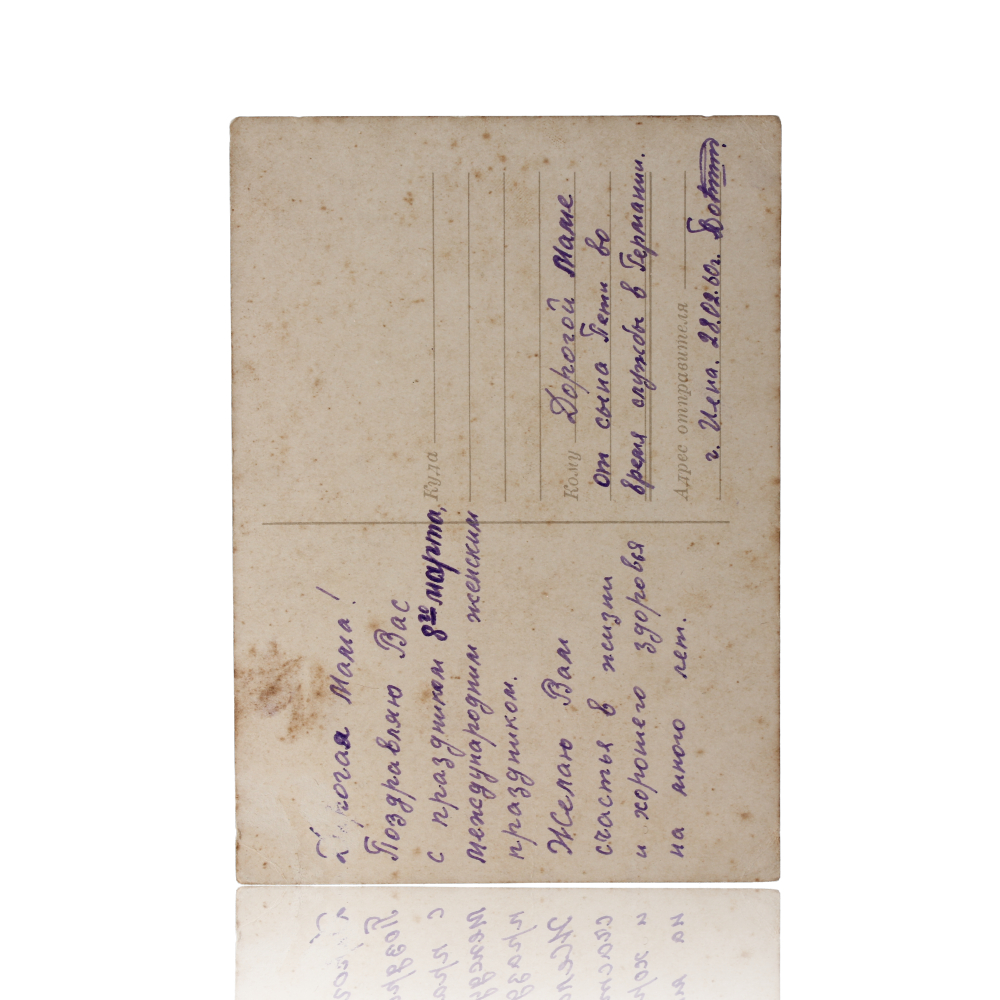 Дорогая Мама!
Поздравляю Вас
с праздником 8го марта,
международним женским
праздником.
Желаю Вам
счастья в жизни
и хорошего здоровья
на много лет.
Куда
Кому Дорогой Маме
от сына Пети во
время службы в Германии.
Адрес отправителя
г. Иена. 28.02.60г.